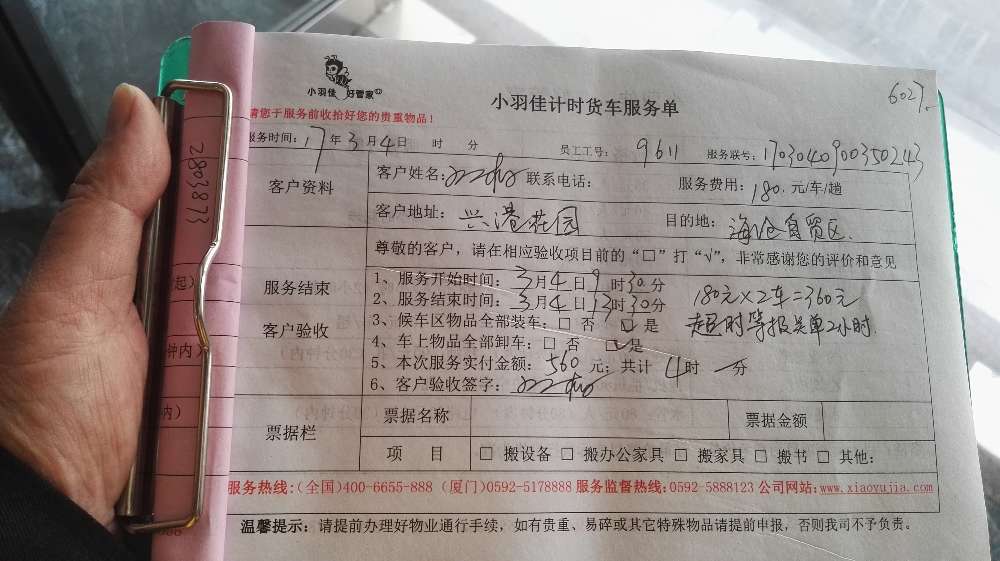 小羽佳 好管家
小羽佳计时货车服务单
6027
请您于服务前收拾好您的贵重物品!
服务时间: 17年3月4日 时 分 员工工号: 9611 服务联号: 1703040900350243
2803873
客户资料
客户姓名: 联系电话: 服务费用: 180.元/车/趟
客户地址: 兴港花园 目的地: 海沧自贸区.
尊敬的客户,请在相应验收项目前的“□”打“√”,非常感谢您的评价和意见
服务结束
客户验收
1、服务开始时间: 3月4日9时30分
2、服务结束时间: 3月4日13时30分
3、候车区物品全部装车: □ 否 ☑是
4、车上物品全部卸车: □ 否 ☑是
5、本次服务实付金额: 560元; 共计 4时 一分
6、客户验收签字:
180元×2车=360元
超时等报关单2小时.
票据栏
票据名称 票据金额
项 目 □ 搬设备 □ 搬办公家具 □ 搬家具 □ 搬书 □ 其他:
服务热线:(全国)400-6655-888 (厦门)0592-5178888 服务监督热线:0592-5888123 公司网站:www.xiaoyujia.com
温馨提示: 请提前办理好物业通行手续,如有贵重、易碎或其它特殊物品请提前申报,否则我司不予负责。